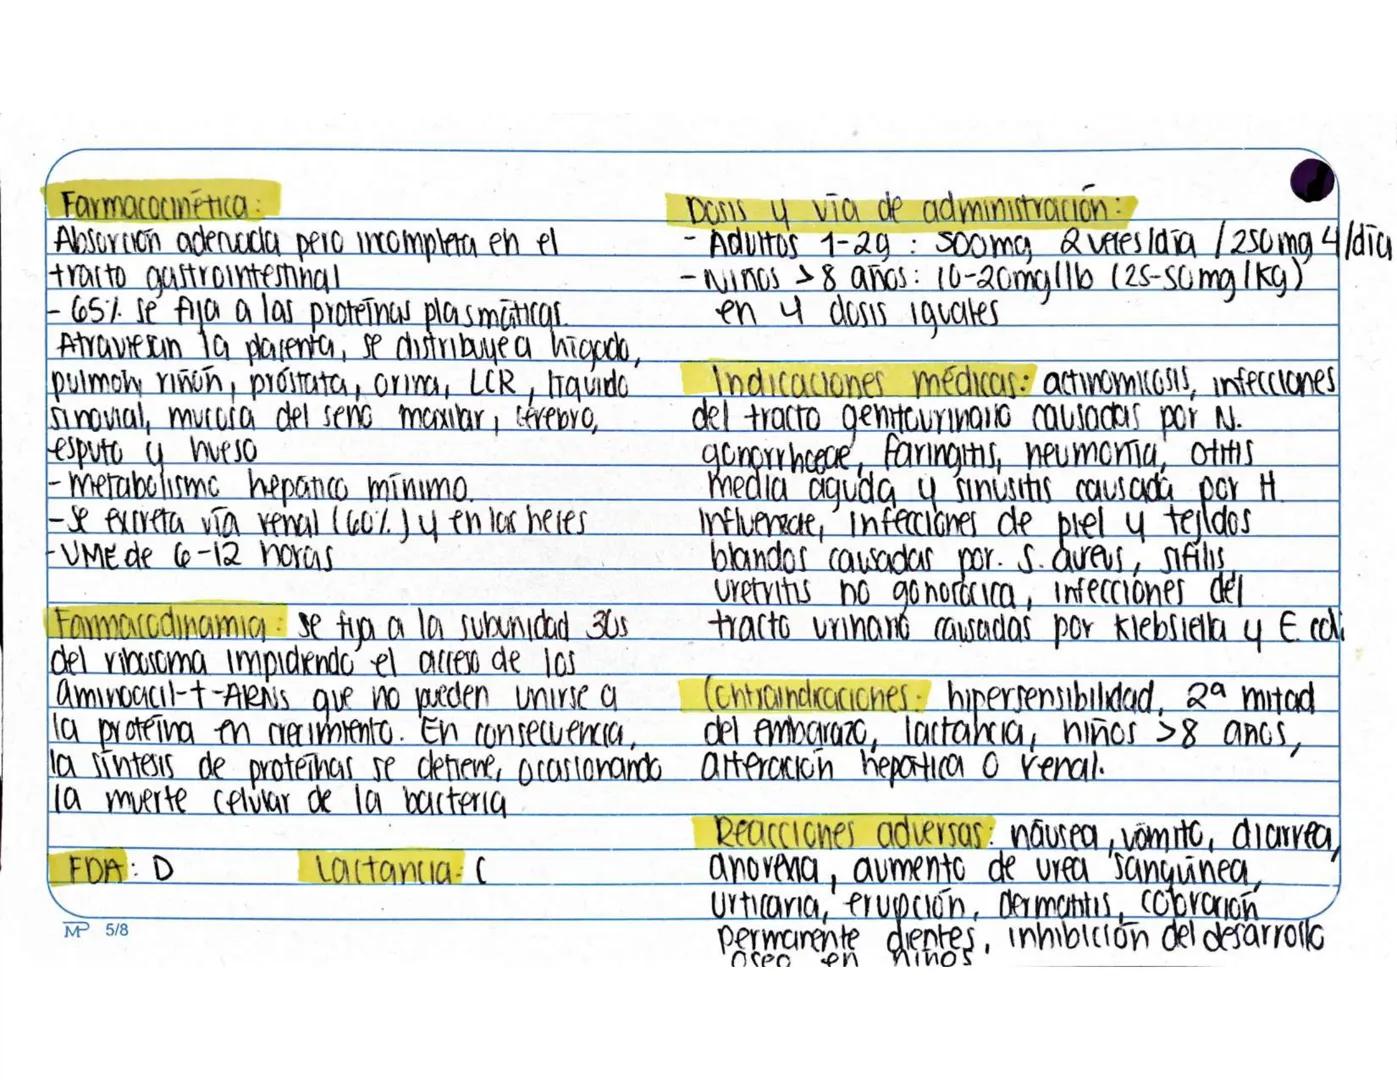 Farmacocinética:
Absorción adecuada pero incompleta en el
tracto gastrointestinal
- 65% se fija a las proteínas plasmáticas.
Atraviesan la placenta, se distribuye a hígado,
pulmón, riñón, próstata, orina, LCR, líquido
sinovial, mucosa del seno maxilar, cerebro,
esputo y hueso
- metabolismo hepático mínimo.
- Se excreta vía renal (60%) y en las heces
- VME de 6-12 horas
Farmacodinamia: se fija a la subunidad 30s
del ribosoma impidiendo el acceso de los
aminoacil-t-ARNs que no pueden unirse a
la proteína en crecimiento. En consecuencia,
la síntesis de proteínas se detiene, ocasionando
la muerte celular de la bacteria
FDA: D Lactancia: C
MP 5/8
Dosis y vía de administración:
- Adultos 1-2g: 500mg 2 veces/día / 250mg 4/día
- Niños >8 años: 10-20mg/lb (25-50mg/kg)
en 4 dosis iguales
Indicaciones médicas: actinomicosis, infecciones
del tracto genitourinario causadas por N.
gonorrhoeae, faringitis, neumonía, otitis
media aguda y sinusitis causada por H.
Influenzae, infecciones de piel y tejidos
blandos causadas por. S. aureus, sífilis,
uretritis no gonocócica, infecciones del
tracto urinario causadas por Klebsiella y E. coli
Contraindicaciones: hipersensibilidad, 2ª mitad
del embarazo, lactancia, niños >8 anos,
alteración hepática o renal.
Reacciones adversas: náusea, vómito, diarrea,
anorexia, aumento de urea sanguínea,
urticaria, erupción, dermatitis, coloración
permanente dientes, inhibición del desarrollo
oseo en niños.